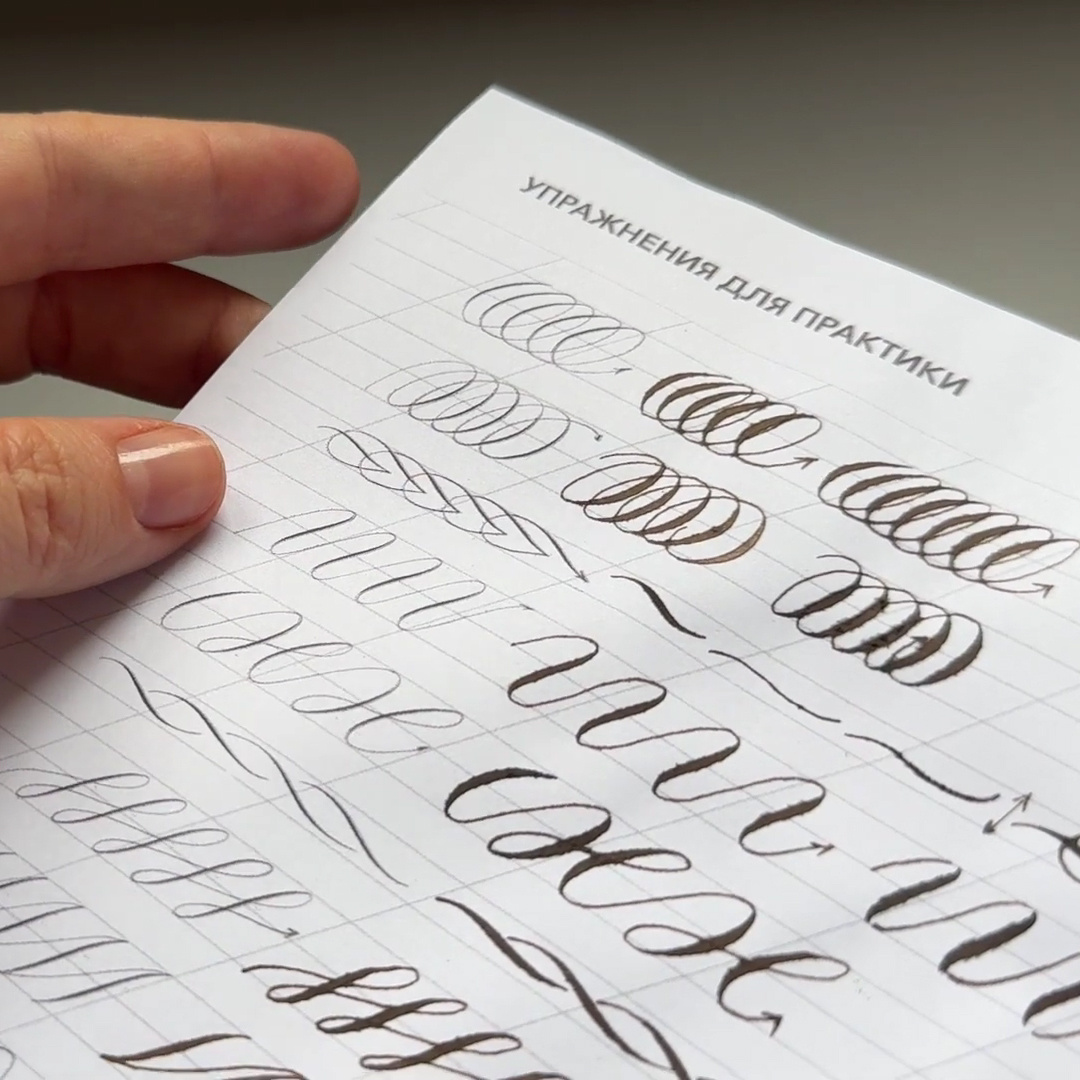 УПРАЖНЕНИЯ ДЛЯ ПРАКТИКИ